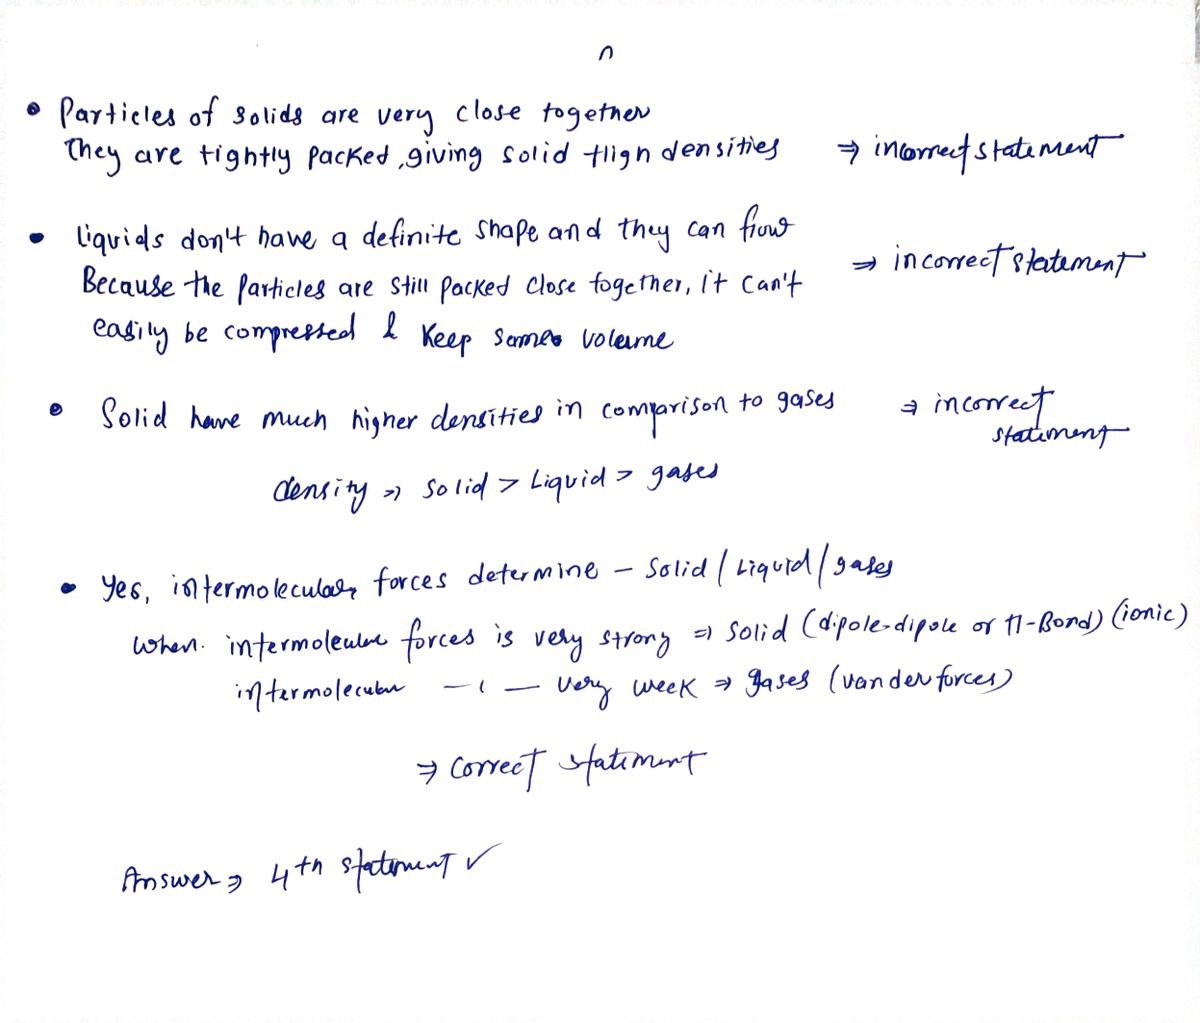 n
• Particles of solids are very close together
They are tightly packed, giving solid High densities ⇒ incorrect statement
• liquids don't have a definite shape and they can flow
⇒ incorrect statement
Because the particles are still packed close together, it can't
easily be compressed & keep same volume
• Solid have much higher densities in comparison to gases ⇒ incorrect
statement
density ⇒ solid > Liquid > gases
• Yes, intermolecular forces determine - Solid / Liquid / gases
When. intermolecular forces is very strong ⇒ solid (dipole-dipole or H-Bond) (ionic)
intermolecular —ı— very week ⇒ gases (vander forces)
⇒ correct statement
Answer ⇒ 4th statement ✓